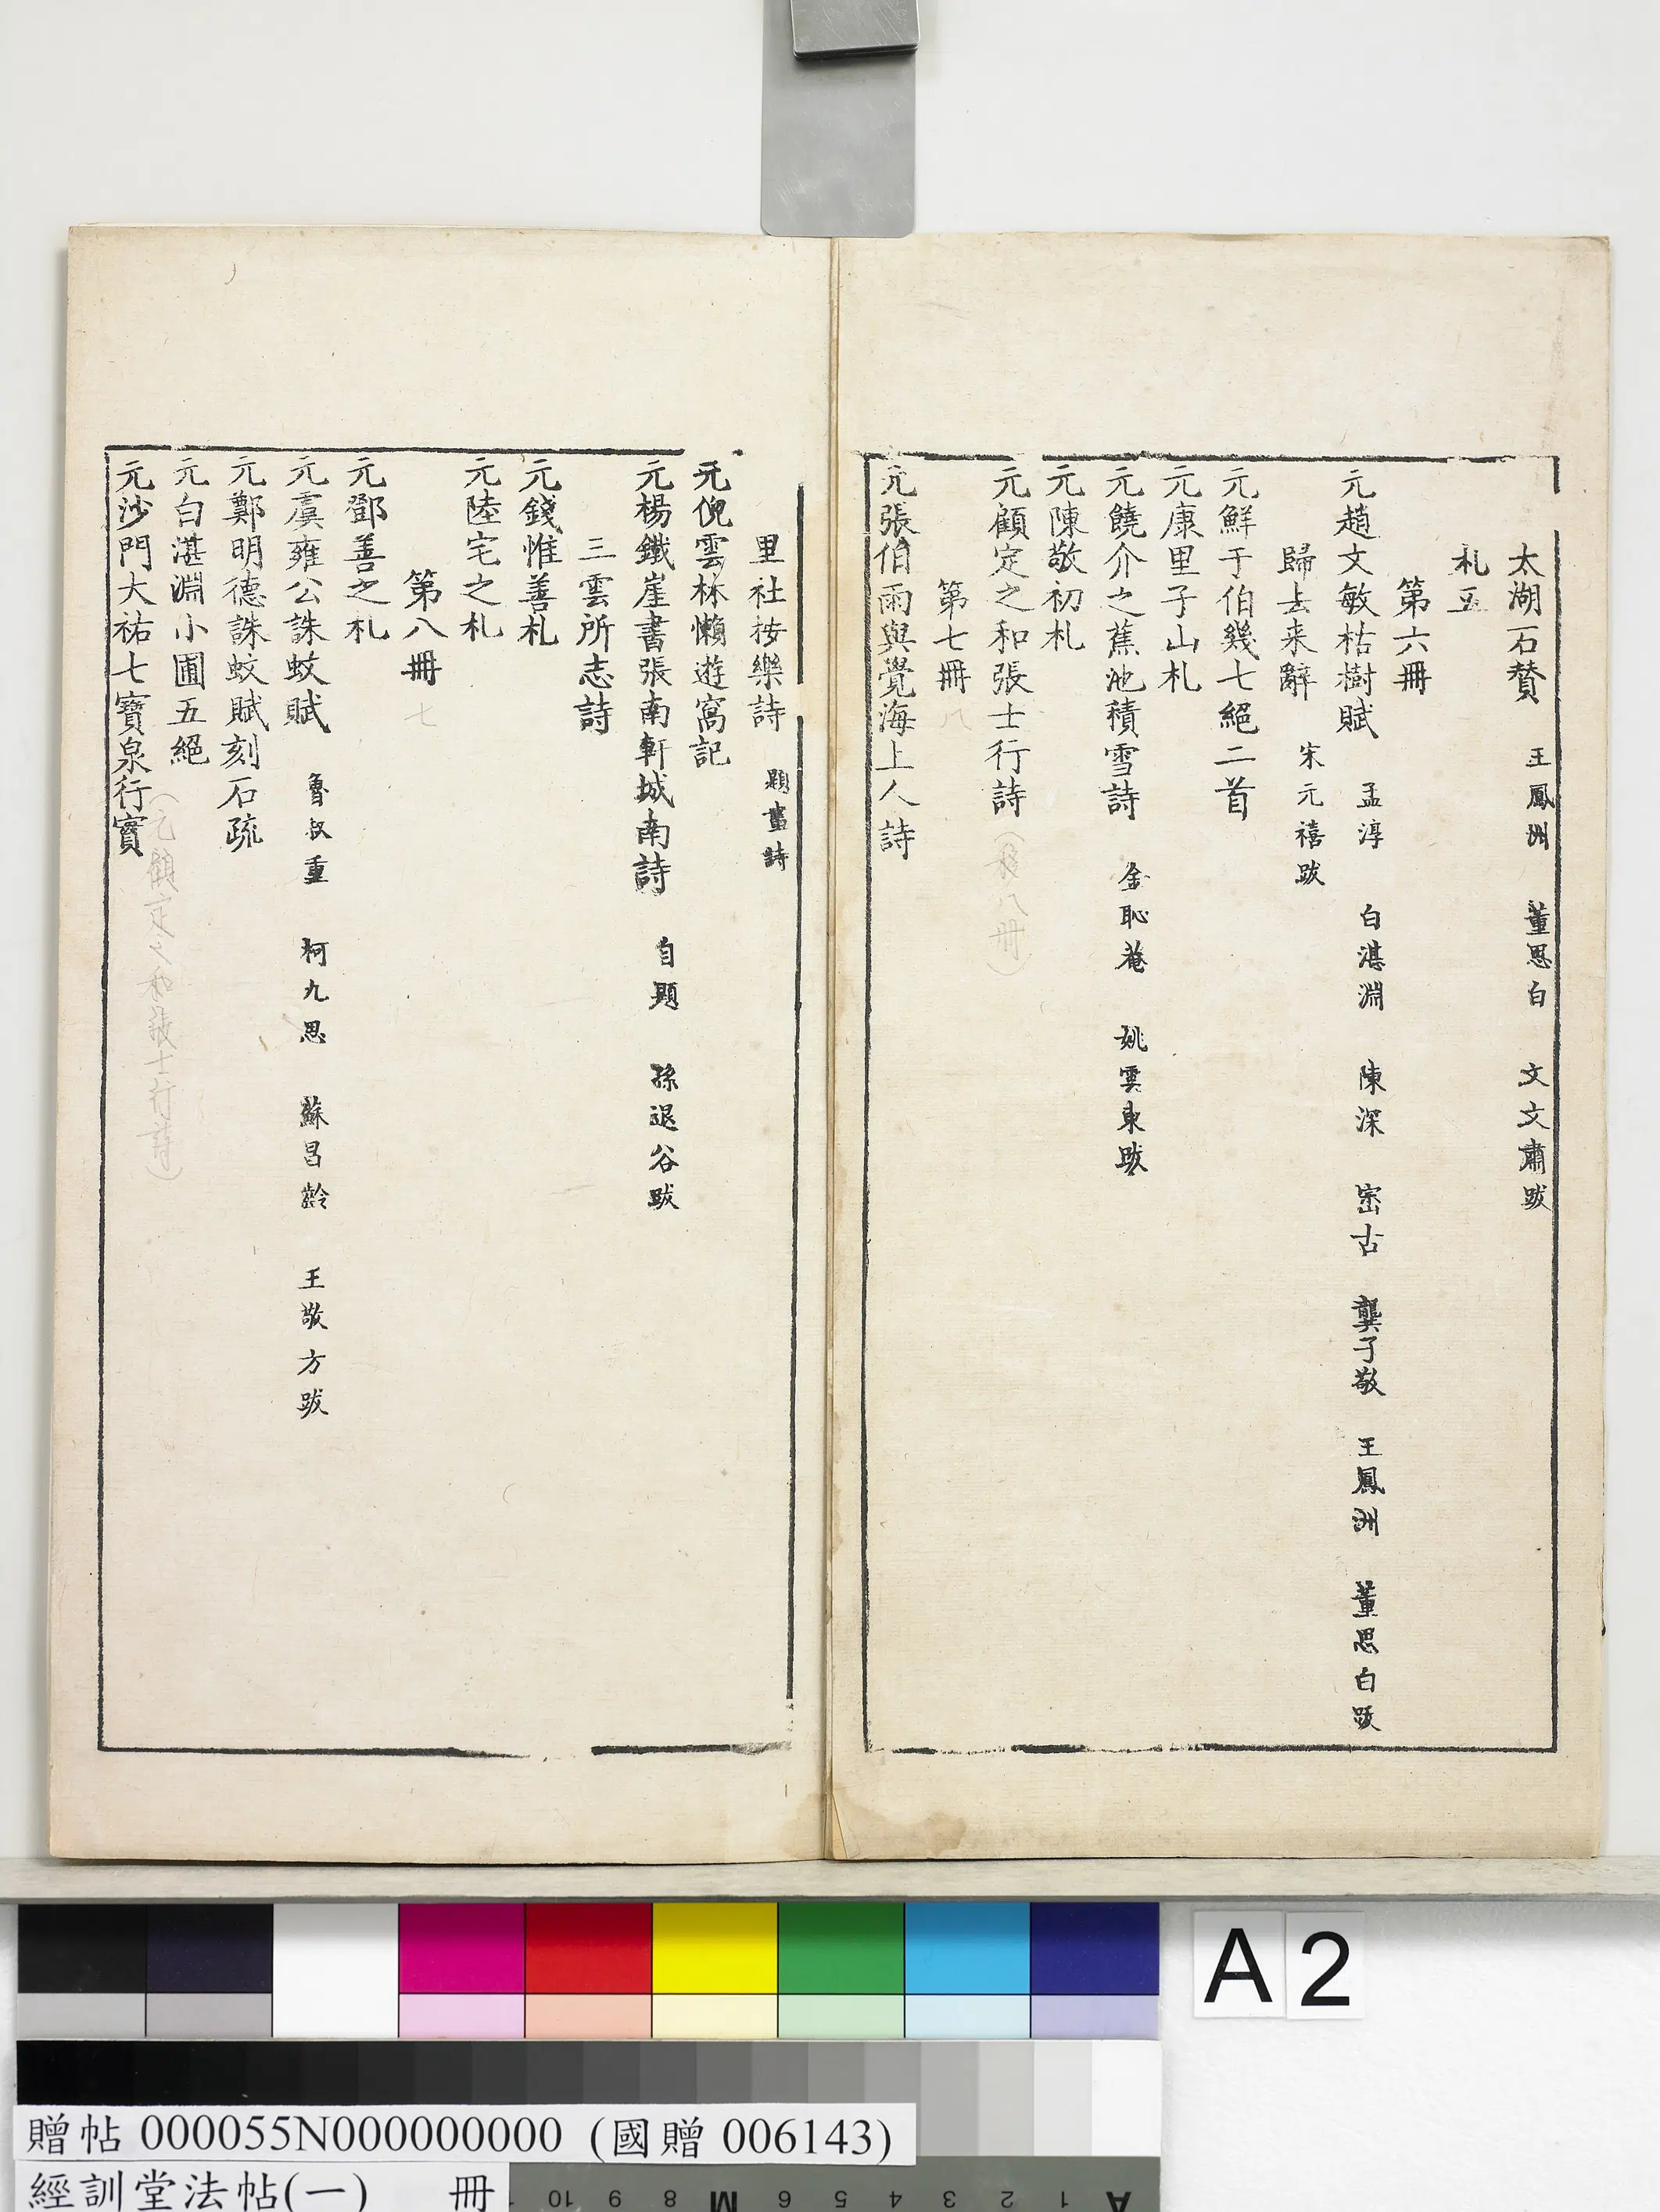 太湖石贊　王鳳洲　董思白　文文肅跋
札五
第六冊
元趙文敏枯樹賦　孟淳　白湛淵　陳深　宻古　龔子敬　王鳳洲　董思白跋
歸去来辭　宋元禧跋
元鮮于伯幾七絕二首
元康里子山札
元饒介之蕉池積雪詩　金恥菴　姚雲東跋
元陳敬初札
元顧定之和張士行詩（移八冊）
第七冊八
元張伯雨與覺海上人詩
里社按樂詩　題畫詩
元倪雲林懶遊窩記
元楊鐵崖書張南軒城南詩　自題　孫退谷跋
三雲所志詩
元錢惟善札
元陸宅之札
元鄧善之札
第八冊七
元虞雍公誅蚊賦　魯叔重　柯九思　蘇昌齡　王敬方跋
元鄭明德誅蚊賦刻石疏
元白湛淵小圃五絕
（元顧定之和張士行詩）
元沙門大祐七寶泉行實
A2
贈帖 000055N000000000 (國贈 006143)
經訓堂法帖(一)　冊
10 9 8 M 6 5 4 3 2 1 A